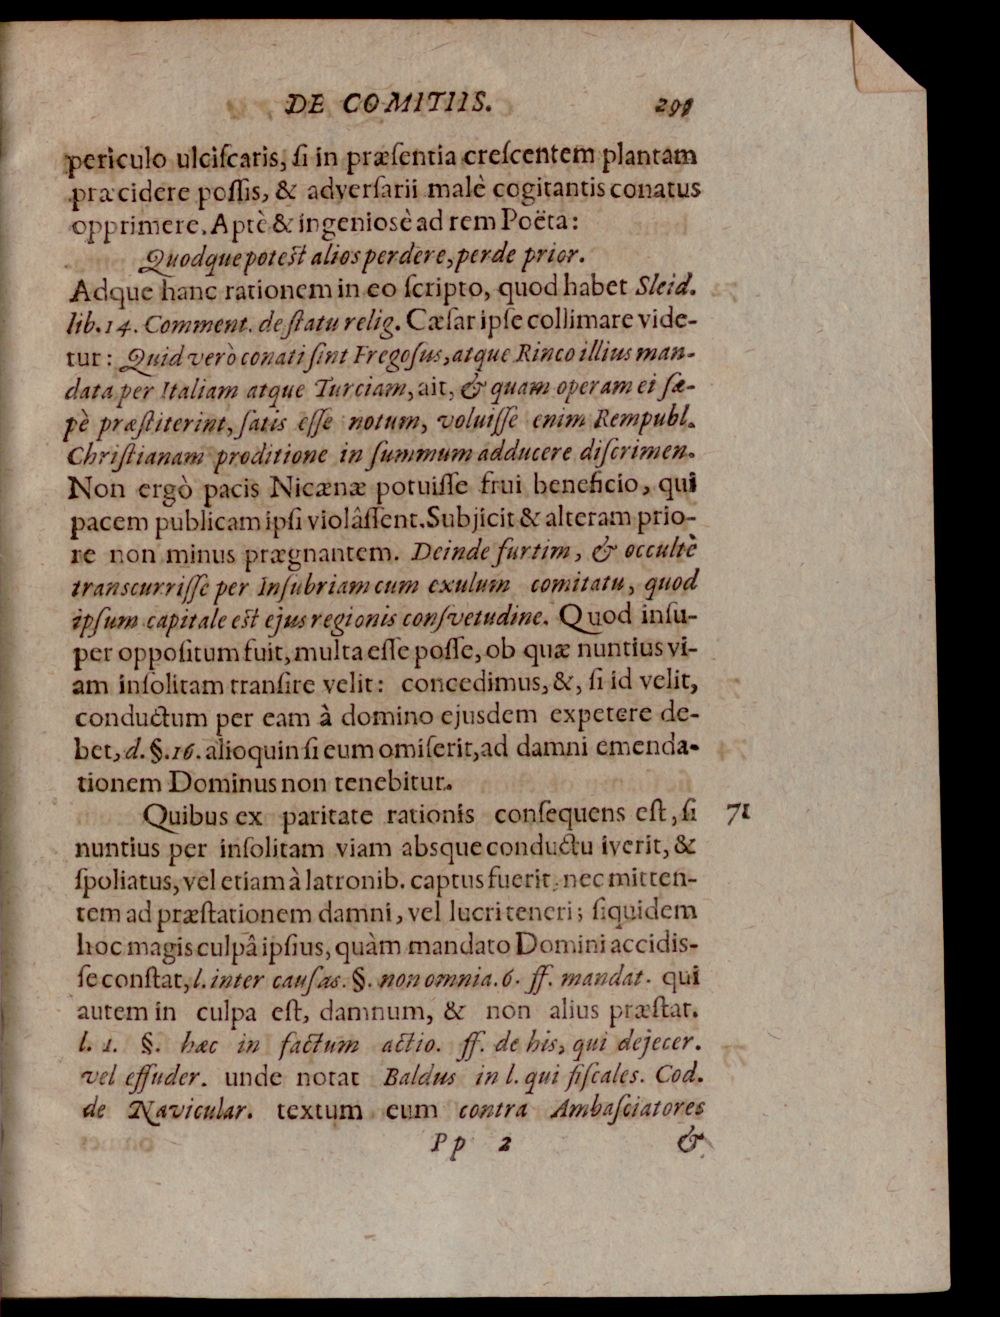 DE COMITIIS. 299
periculo ulciſcaris, ſi in præſentia creſcentem plantam
præcidere poſſis, & adverſarii malè cogitantis conatus
opprimere. Aptè & ingeniosè ad rem Poëta:
Quodque potest alios perdere, perde prior.
Adque hanc rationem in eo ſcripto, quod habet Sleid.
lib. 14. Comment. de ſtatu relig. Cæſar ipſe collimare vide-
tur: Quid verò conati ſint Fregoſus, atque Rinco illius man-
data per Italiam atque Turciam, ait, & quam operam ei ſæ-
pè præſtiterint, ſatis eſſe notum, voluiſſe enim Rempubl.
Chriſtianam proditione in ſummum adducere diſcrimen.
Non ergò pacis Nicænæ potuiſſe frui beneficio, qui
pacem publicam ipſi violâſſent. Subjicit & alteram prio-
re non minus prægnantem. Deinde furtim, & occultè
transcurriſſe per Inſubriam cum exulum comitatu, quod
ipſum capitale est ejus regionis conſvetudine. Quod inſu-
per oppoſitum fuit, multa eſſe poſſe, ob quæ nuntius vi-
am inſolitam tranſire velit: concedimus, &, ſi id velit,
conductum per eam à domino ejusdem expetere de-
bet, d. §. 16. alioquin ſi eum omiſerit, ad damni emenda-
tionem Dominus non tenebitur.
Quibus ex paritate rationis conſequens eſt, ſi 71
nuntius per inſolitam viam absque conductu iverit, &
ſpoliatus, vel etiam à latronib. captus fuerit: nec mitten-
tem ad præſtationem damni, vel lucri teneri; ſiquidem
hoc magis culpâ ipſius, quàm mandato Domini accidis-
ſe conſtat, l. inter cauſas. §. non omnia. 6. ff. mandat. qui
autem in culpa eſt, damnum, & non alius præſtat.
l. 1. §. hæc in factum actio. ff. de his, qui dejecer.
vel effuder. unde notat Baldus in l. qui fiſcales. Cod.
de Navicular. textum eum contra Ambaſciatores
Pp 2 &